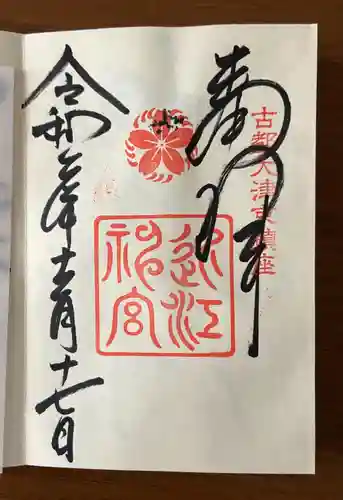 古都大津京鎮座
奉拝
近江
神宮
令和 年 月十七日